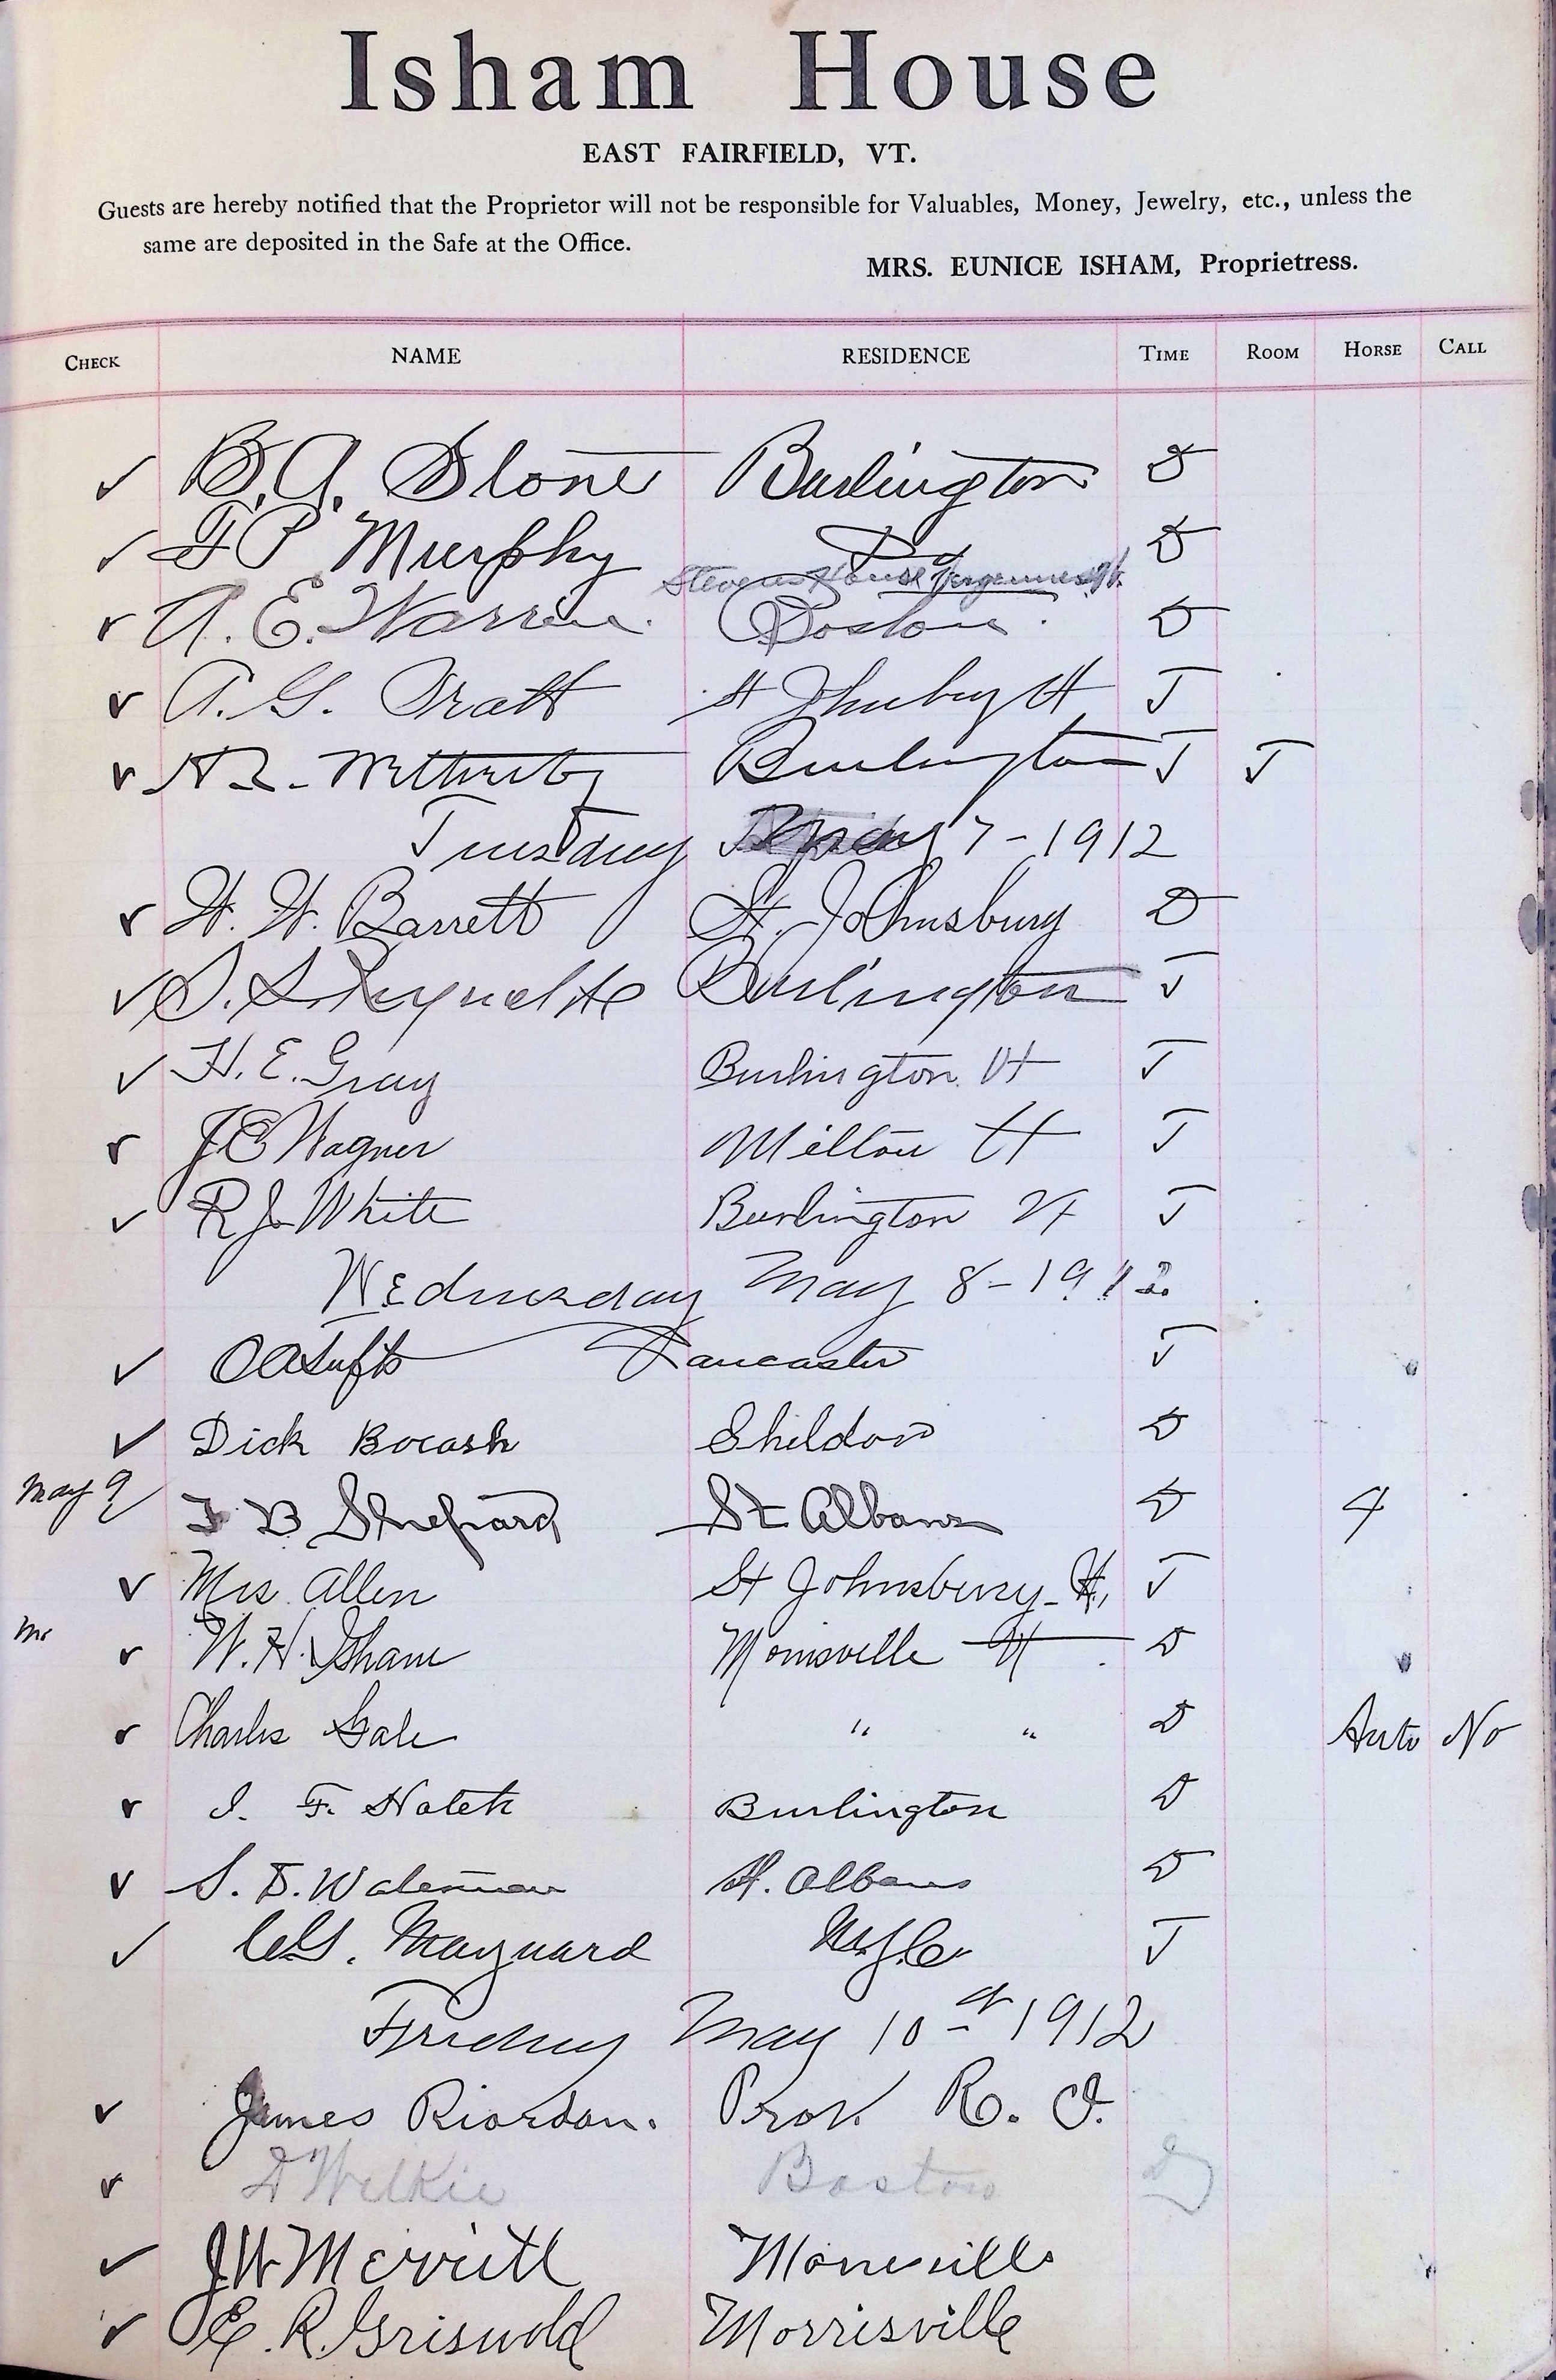 Isham House
EAST FAIRFIELD, VT.
Guests are hereby notified that the Proprietor will not be responsible for Valuables, Money, Jewelry, etc., unless the
same are deposited in the Safe at the Office.
MRS. EUNICE ISHAM, Proprietress.
CHECK NAME RESIDENCE TIME ROOM HORSE CALL
✓ B. A. Stone Burlington D
✓ F P Murphy Do D
Stevens House Vergennes Vt.
✓ A. E. Warren. Boston. D
✓ A. G. Pratt St Jhnsbury Vt T
✓ Burlington T T
Tuesday May 7-1912
✓ W. W. Barrett St. Johnsbury D
✓ S. S. Burlington T
✓ H. E. Gray Burlington Vt T
✓ J C Wagner Milton Vt T
✓ R J White Burlington Vt T
Wednesday May 8-1912
✓ O A Tufts Lancaster T
✓ Dick Bocash Sheldon D
May 9 F B Shepard St Albans D 4
✓ Mrs Allen St Johnsbury Vt, T
Mr ✓ W. H. Isham Morrisville Vt D
✓ Charles Gale " " D Auto No
✓ I. F. Hatch Burlington D
✓ S. D. Waterman St. Albans D
✓ C. G. Maynard N.Y.C. T
Friday May 10th 1912
✓ James Riordan. Prov. R. I.
✓ D Welkie Boston D
✓ J W Merritt Morrisville
✓ E. R. Griswold Morrisville